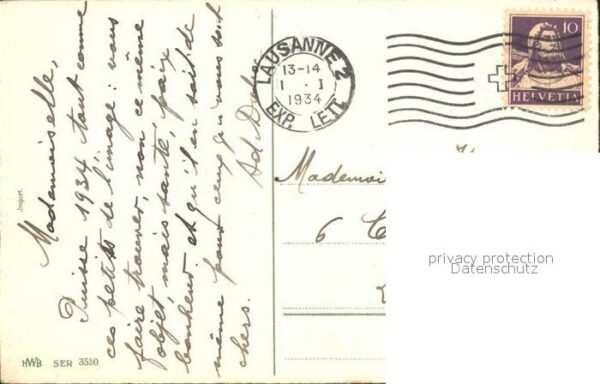 Mademoiselle,
Puisse 1934 tout comme
ces petits de l'image: vous
faire trouver, non ce même
objet mais santé, paix
bonheur et qu'il en soit de
même pour ceux qui vous sont
chers.
Ad.
Import
HWB SER 3550
LAUSANNE 2
13-14
1 · I
1934
EXP. LETT.
10
HELVETIA
Mademoi
6
privacy protection
Datenschutz